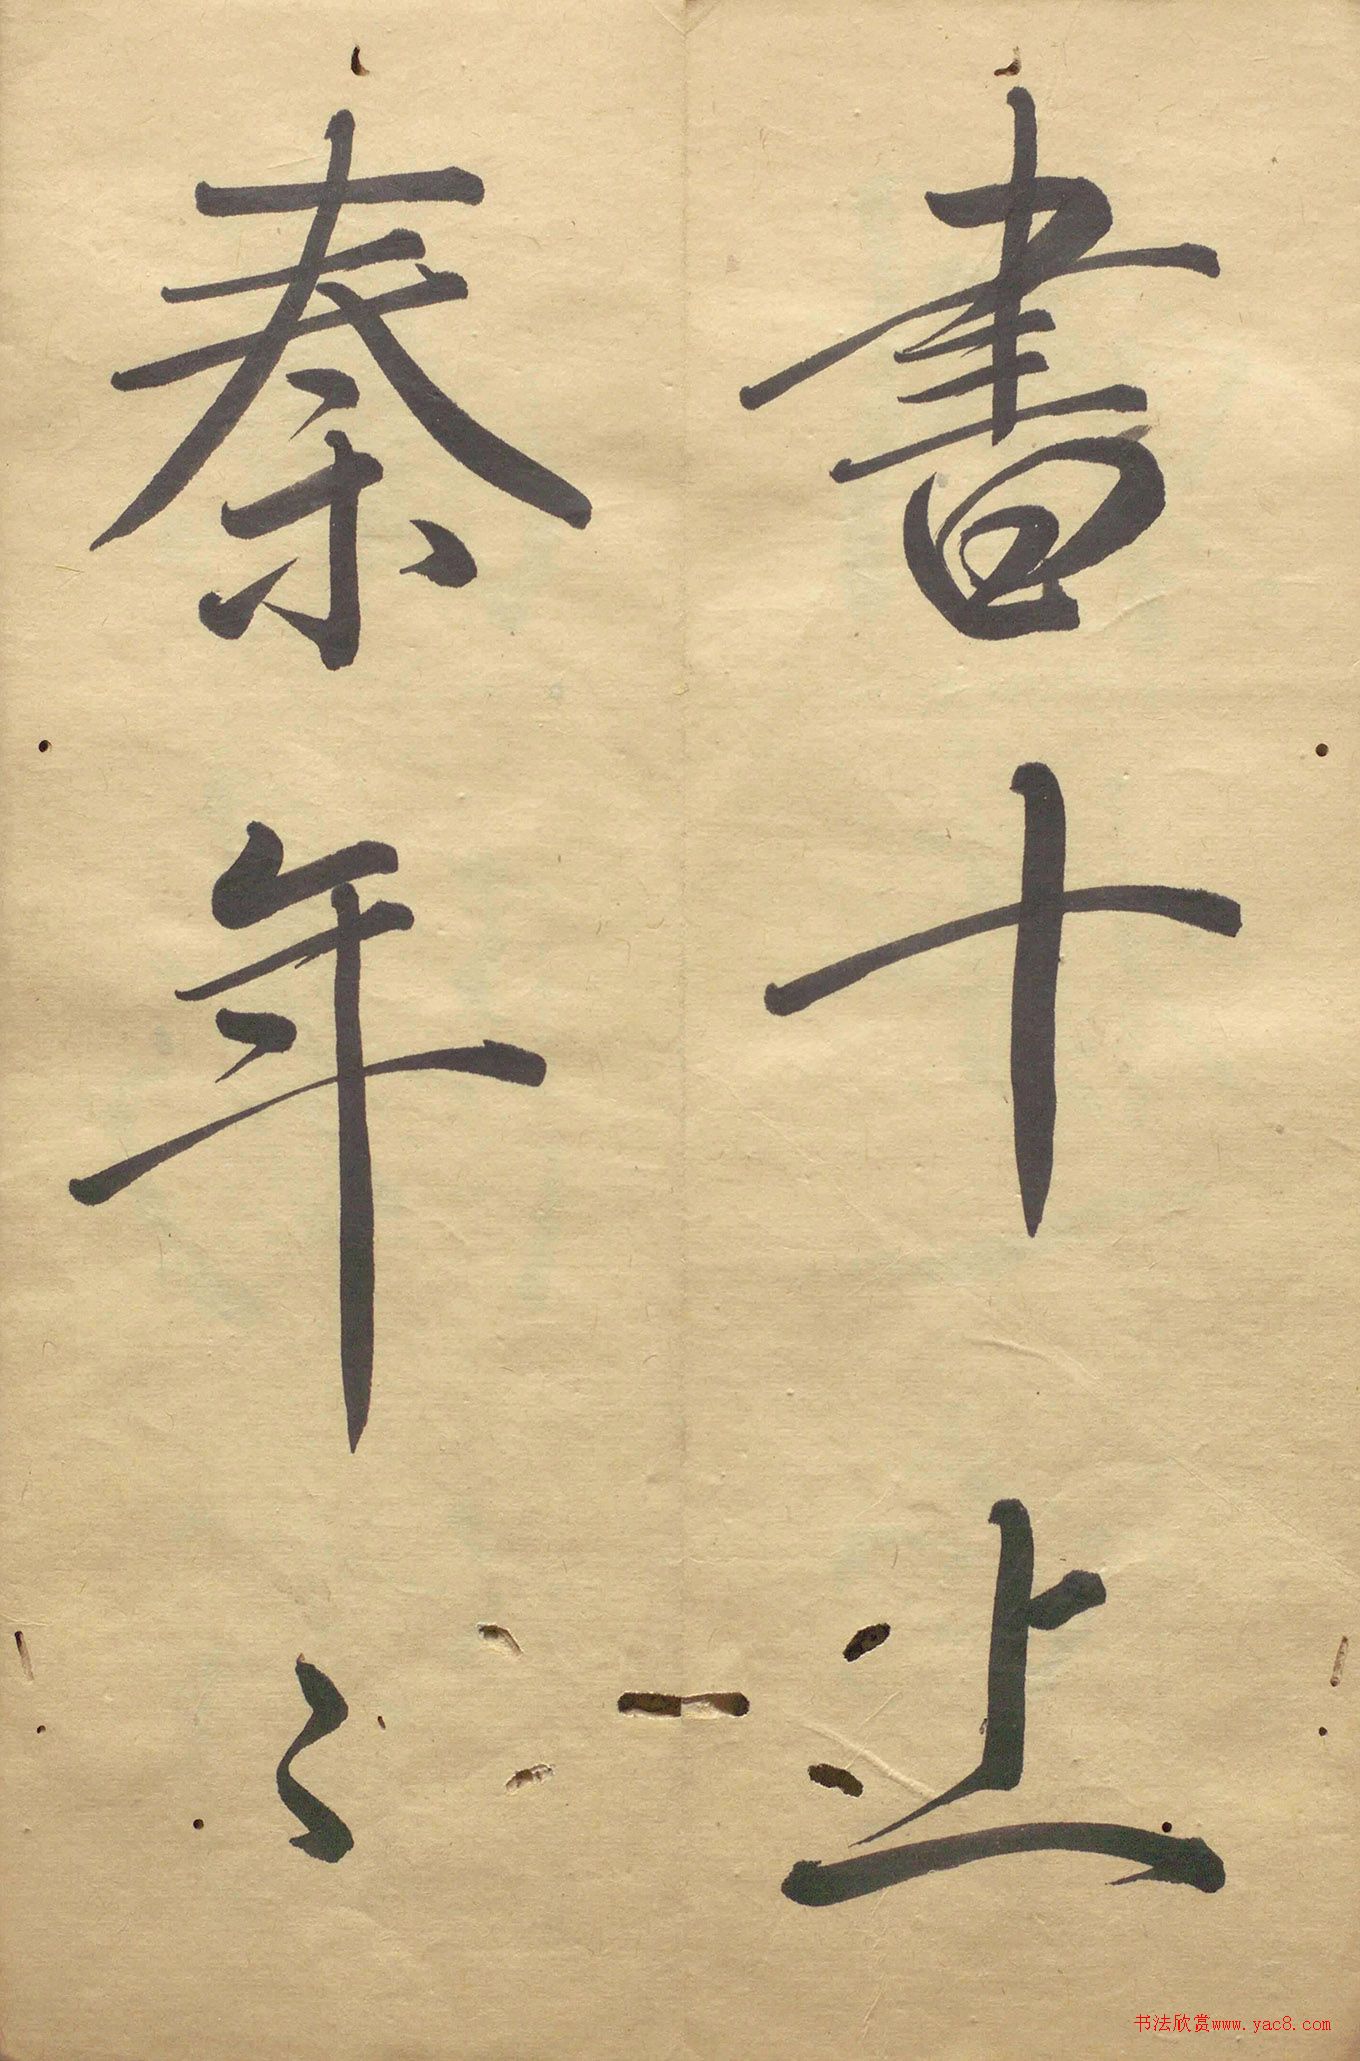 書十上
秦年〻
书法欣赏www.yac8.com